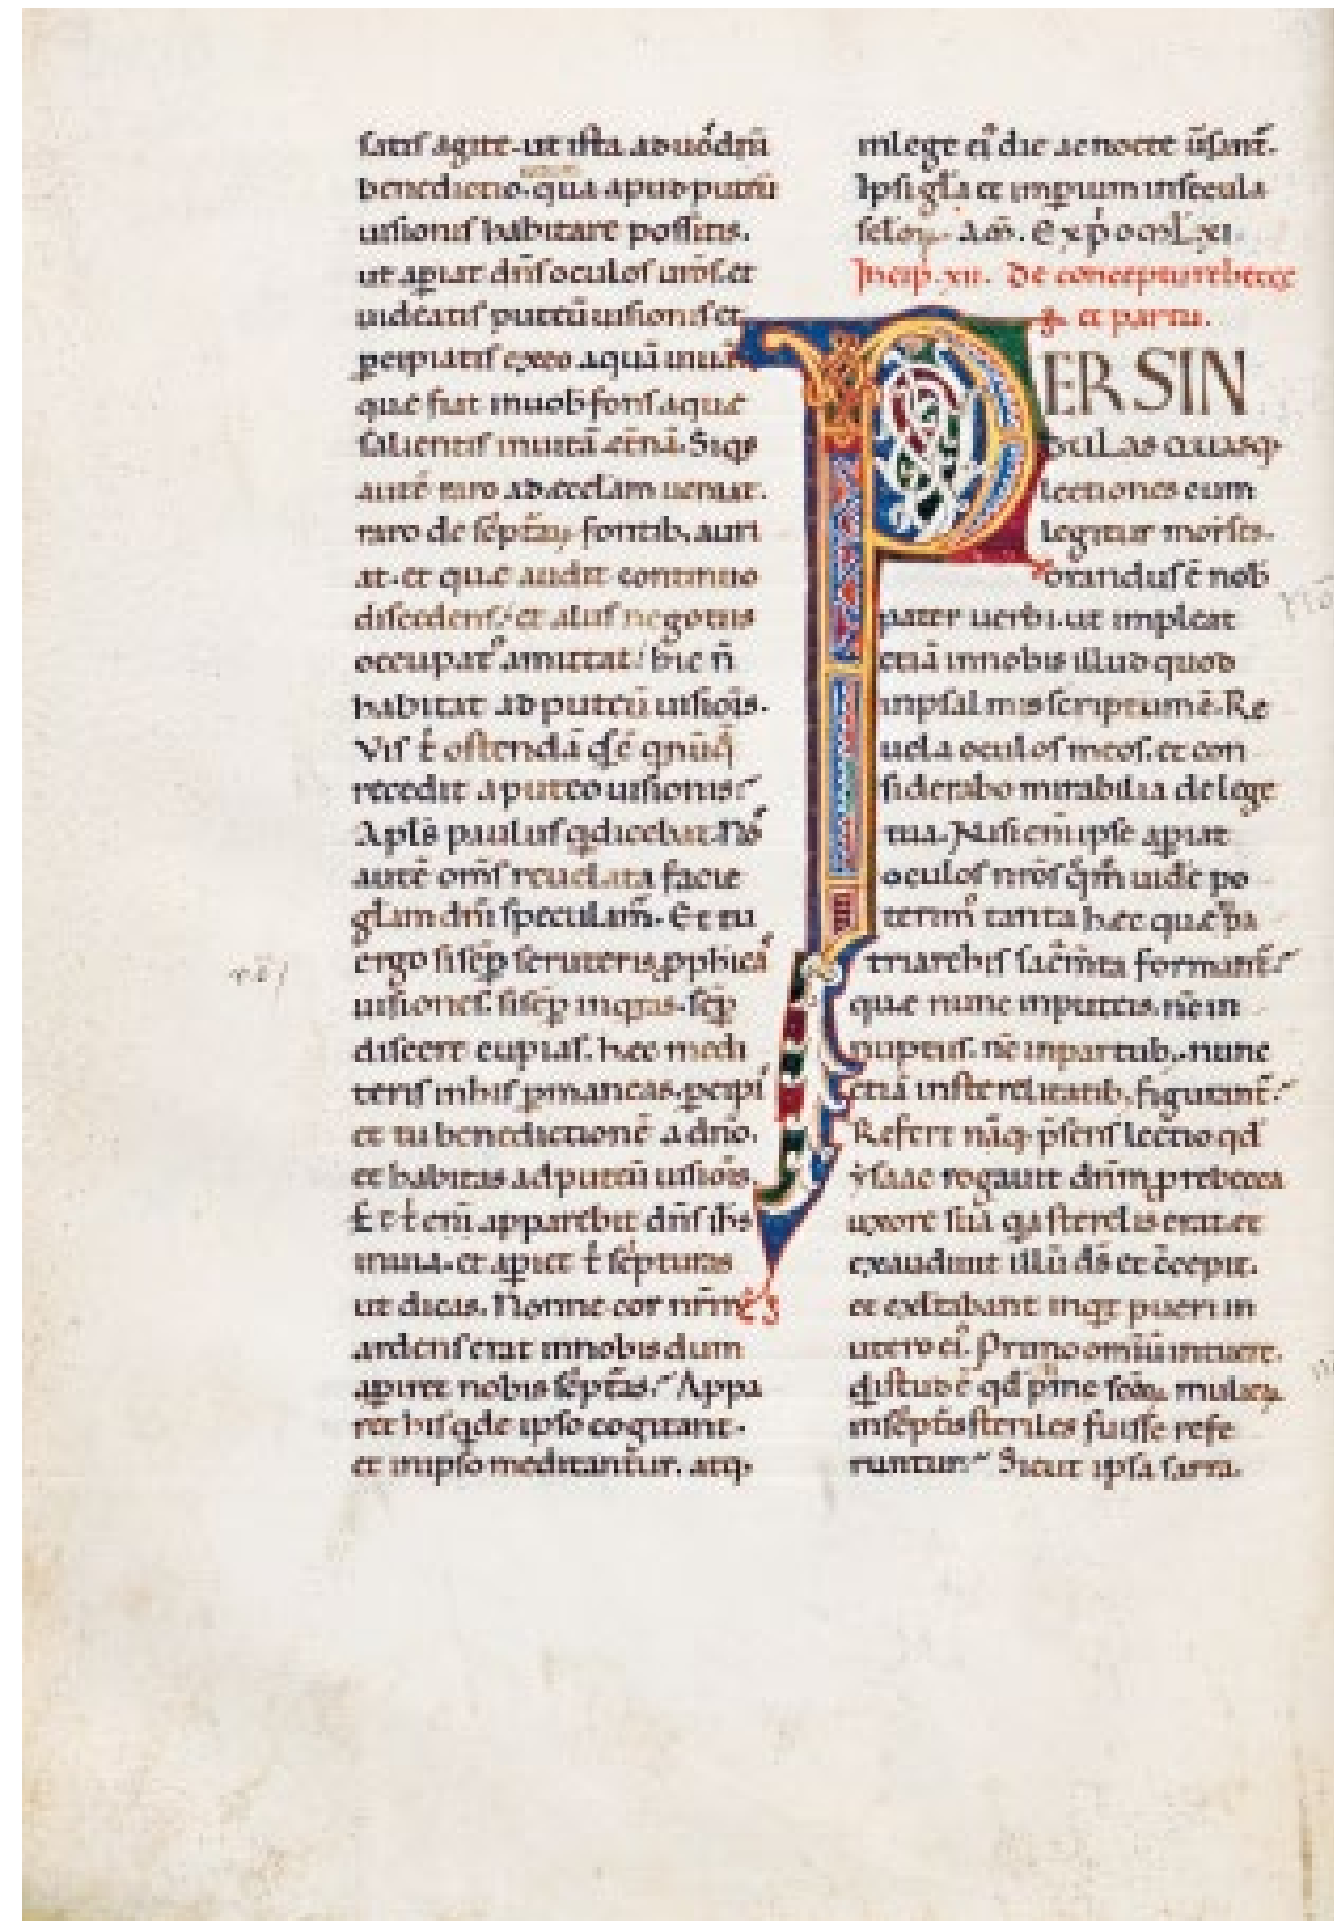 satis agite. ut ista ad uos dn̄i
benedictio. qua apud puteū
uisionis habitare possitis.
ut apiat dn̄s oculos uros. et
uideatis puteū uisionis et
percipiatis ex eo aquā uiuā.
que fiat in uob fons aque
salientis in uitā et̄nā. Siqs
autē raro ad ecclam ueniat.
raro de scptar fontib, auri
at. et que audit continuo
discedens, et aliis negotiis
occupatꝰ amittat, hic n̄
habitat ad puteū uisiois.
Vis t ostendā qs ē q nūq
recedit a puteo uisionis
Apls paulus q dicebat. Nos
autē oms reuelata facie
glam dn̄i speculam̄. Et tu
ergo si sep scruteris pphicas
uisiones. si sep inqras. sep
discere cupias. hec medi
teris in his pmaneas. pcipis
et tu benedictionē a dno.
et habitas ad puteū uisiois.
Et t eni apparebit dn̄s ihs
in uia. et apiet t scpturas
ut dicas. Nonne cor nrm
ardens erat in nobis dum
apiret nobis scptas. Appa
ret his q de ipso cogitant.
et in ipso meditantur. atq,
in lege ei die ac nocte uersant̄.
Ipsi gla et impium in secula
sclor. am. Exp omL xi.
Incip. xii. De conceptu rebecce
et partu.
PER SIN
GULAS QUASQ,
lectiones cum
legitur moises.
orandus ē nob
pater uerbi. ut impleat
etiā in nobis illud quod
in psalmis scriptum ē. Re
uela oculos meos. et con
siderabo mirabilia de lege
tua. Nisi eni ipse apiat
oculos nros qm uide po
terimꝰ tanta hec que pa
triarchis sacmta formant̄.
que nunc in puteis. nc in
nuptiis. nc in partub,. nunc
etiā in sterelitatib, figurant̄.
Refert nāq, psens lectio qd
ysaac rogauit dnm p rebecca
uxore sua qa sterelis erat. et
exaudiuit illū ds et ccepit.
et exultabant inqt pueri in
utero eiꝰ. Primo omiū intuere.
qd istud ē qd plime scar mulierū
in scptis steriles fuisse refe
runtur. Sicut ipsa sarra.